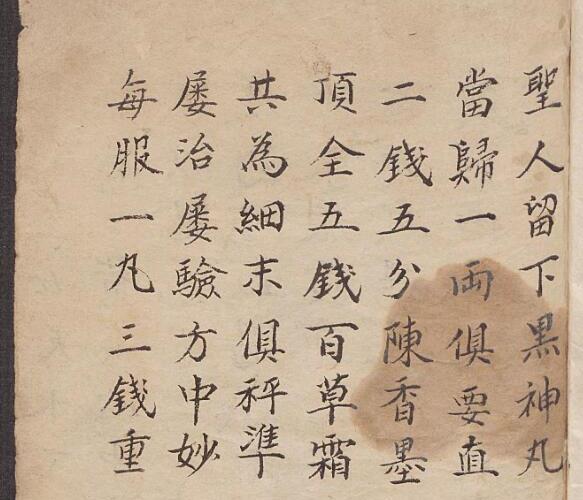 聖人留下黒神丸
當歸一両俱要直
二錢五分陳香墨
頂全五錢百草霜
共為細末俱秤準
屡治屡驗方中妙
每服一丸三錢重